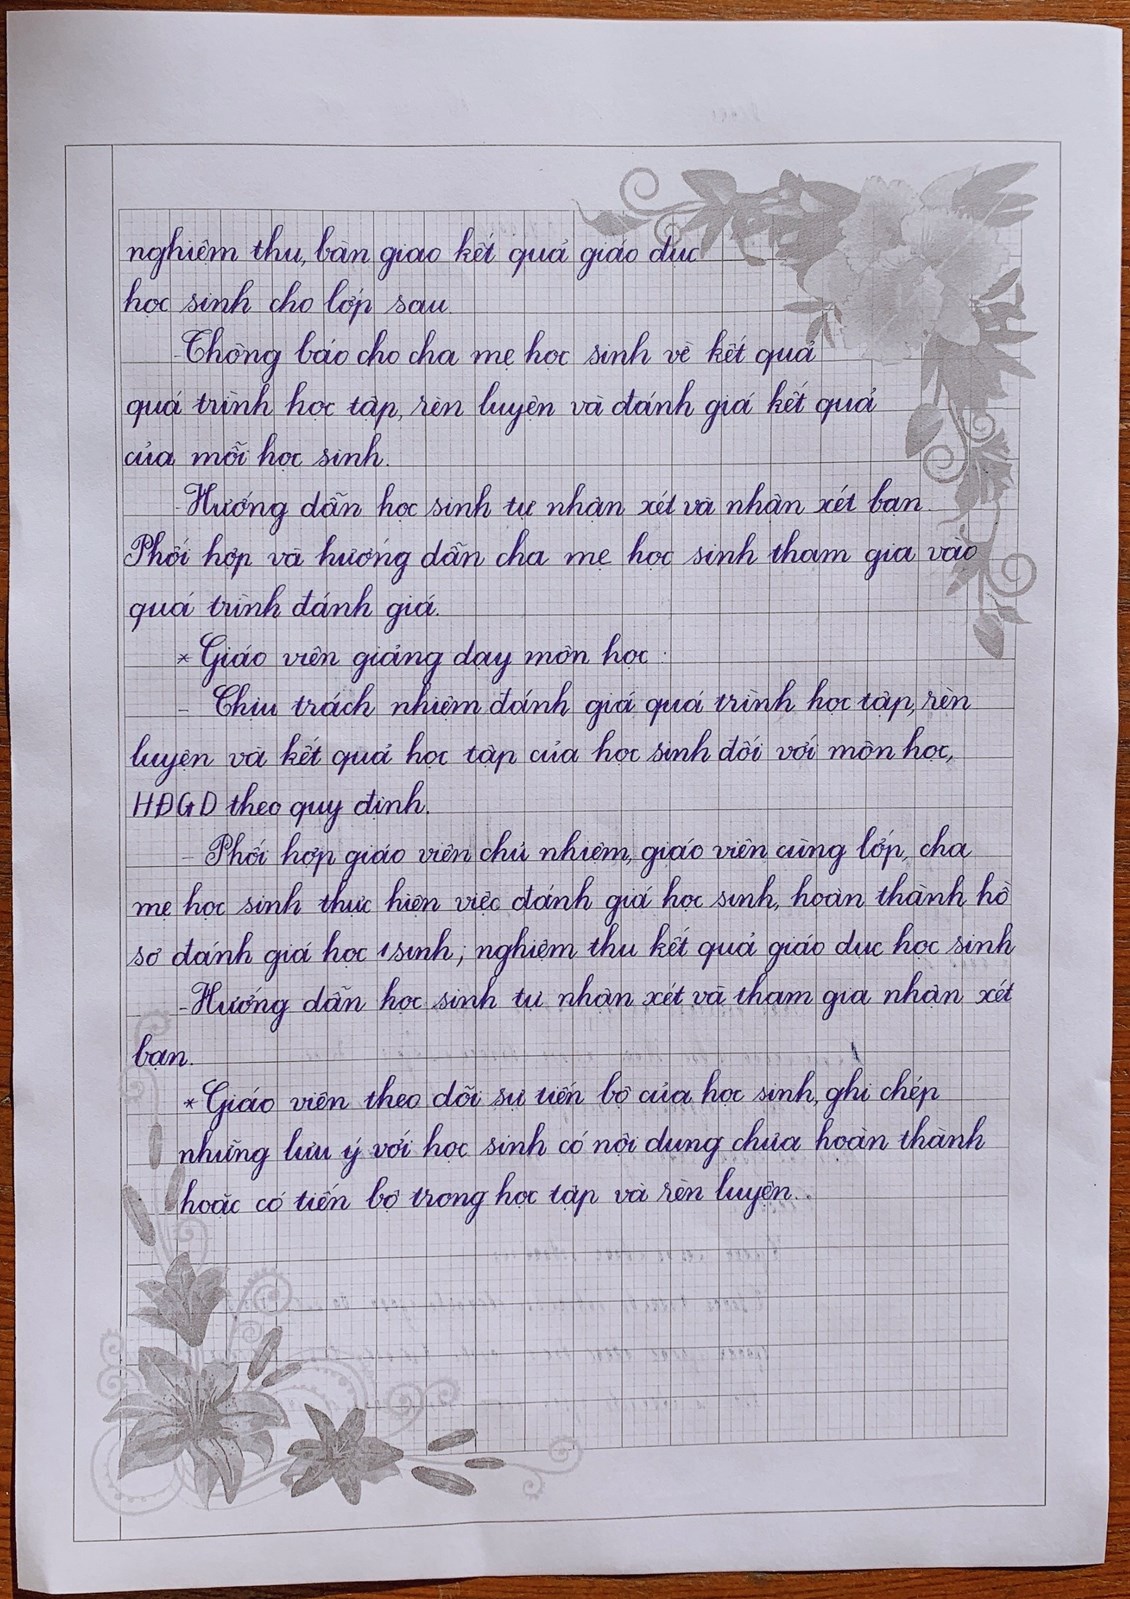 nghiệm thu, bàn giao kết quả giáo dục
học sinh cho lớp sau.
- Thông báo cho cha mẹ học sinh về kết quả
quá trình học tập, rèn luyện và đánh giá kết quả
của mỗi học sinh.
- Hướng dẫn học sinh tự nhận xét và nhận xét bạn.
Phối hợp và hướng dẫn cha mẹ học sinh tham gia vào
quá trình đánh giá.
* Giáo viên giảng dạy môn học.
- Chịu trách nhiệm đánh giá quá trình học tập, rèn
luyện và kết quả học tập của học sinh đối với môn học,
HĐGD theo quy định.
- Phối hợp giáo viên chủ nhiệm, giáo viên cùng lớp, cha
mẹ học sinh thực hiện việc đánh giá học sinh, hoàn thành hồ
sơ đánh giá học sinh; nghiệm thu kết quả giáo dục học sinh
- Hướng dẫn học sinh tự nhận xét và tham gia nhận xét
bạn.
* Giáo viên theo dõi sự tiến bộ của học sinh, ghi chép
những lưu ý với học sinh có nội dung chưa hoàn thành
hoặc có tiến bộ trong học tập và rèn luyện.